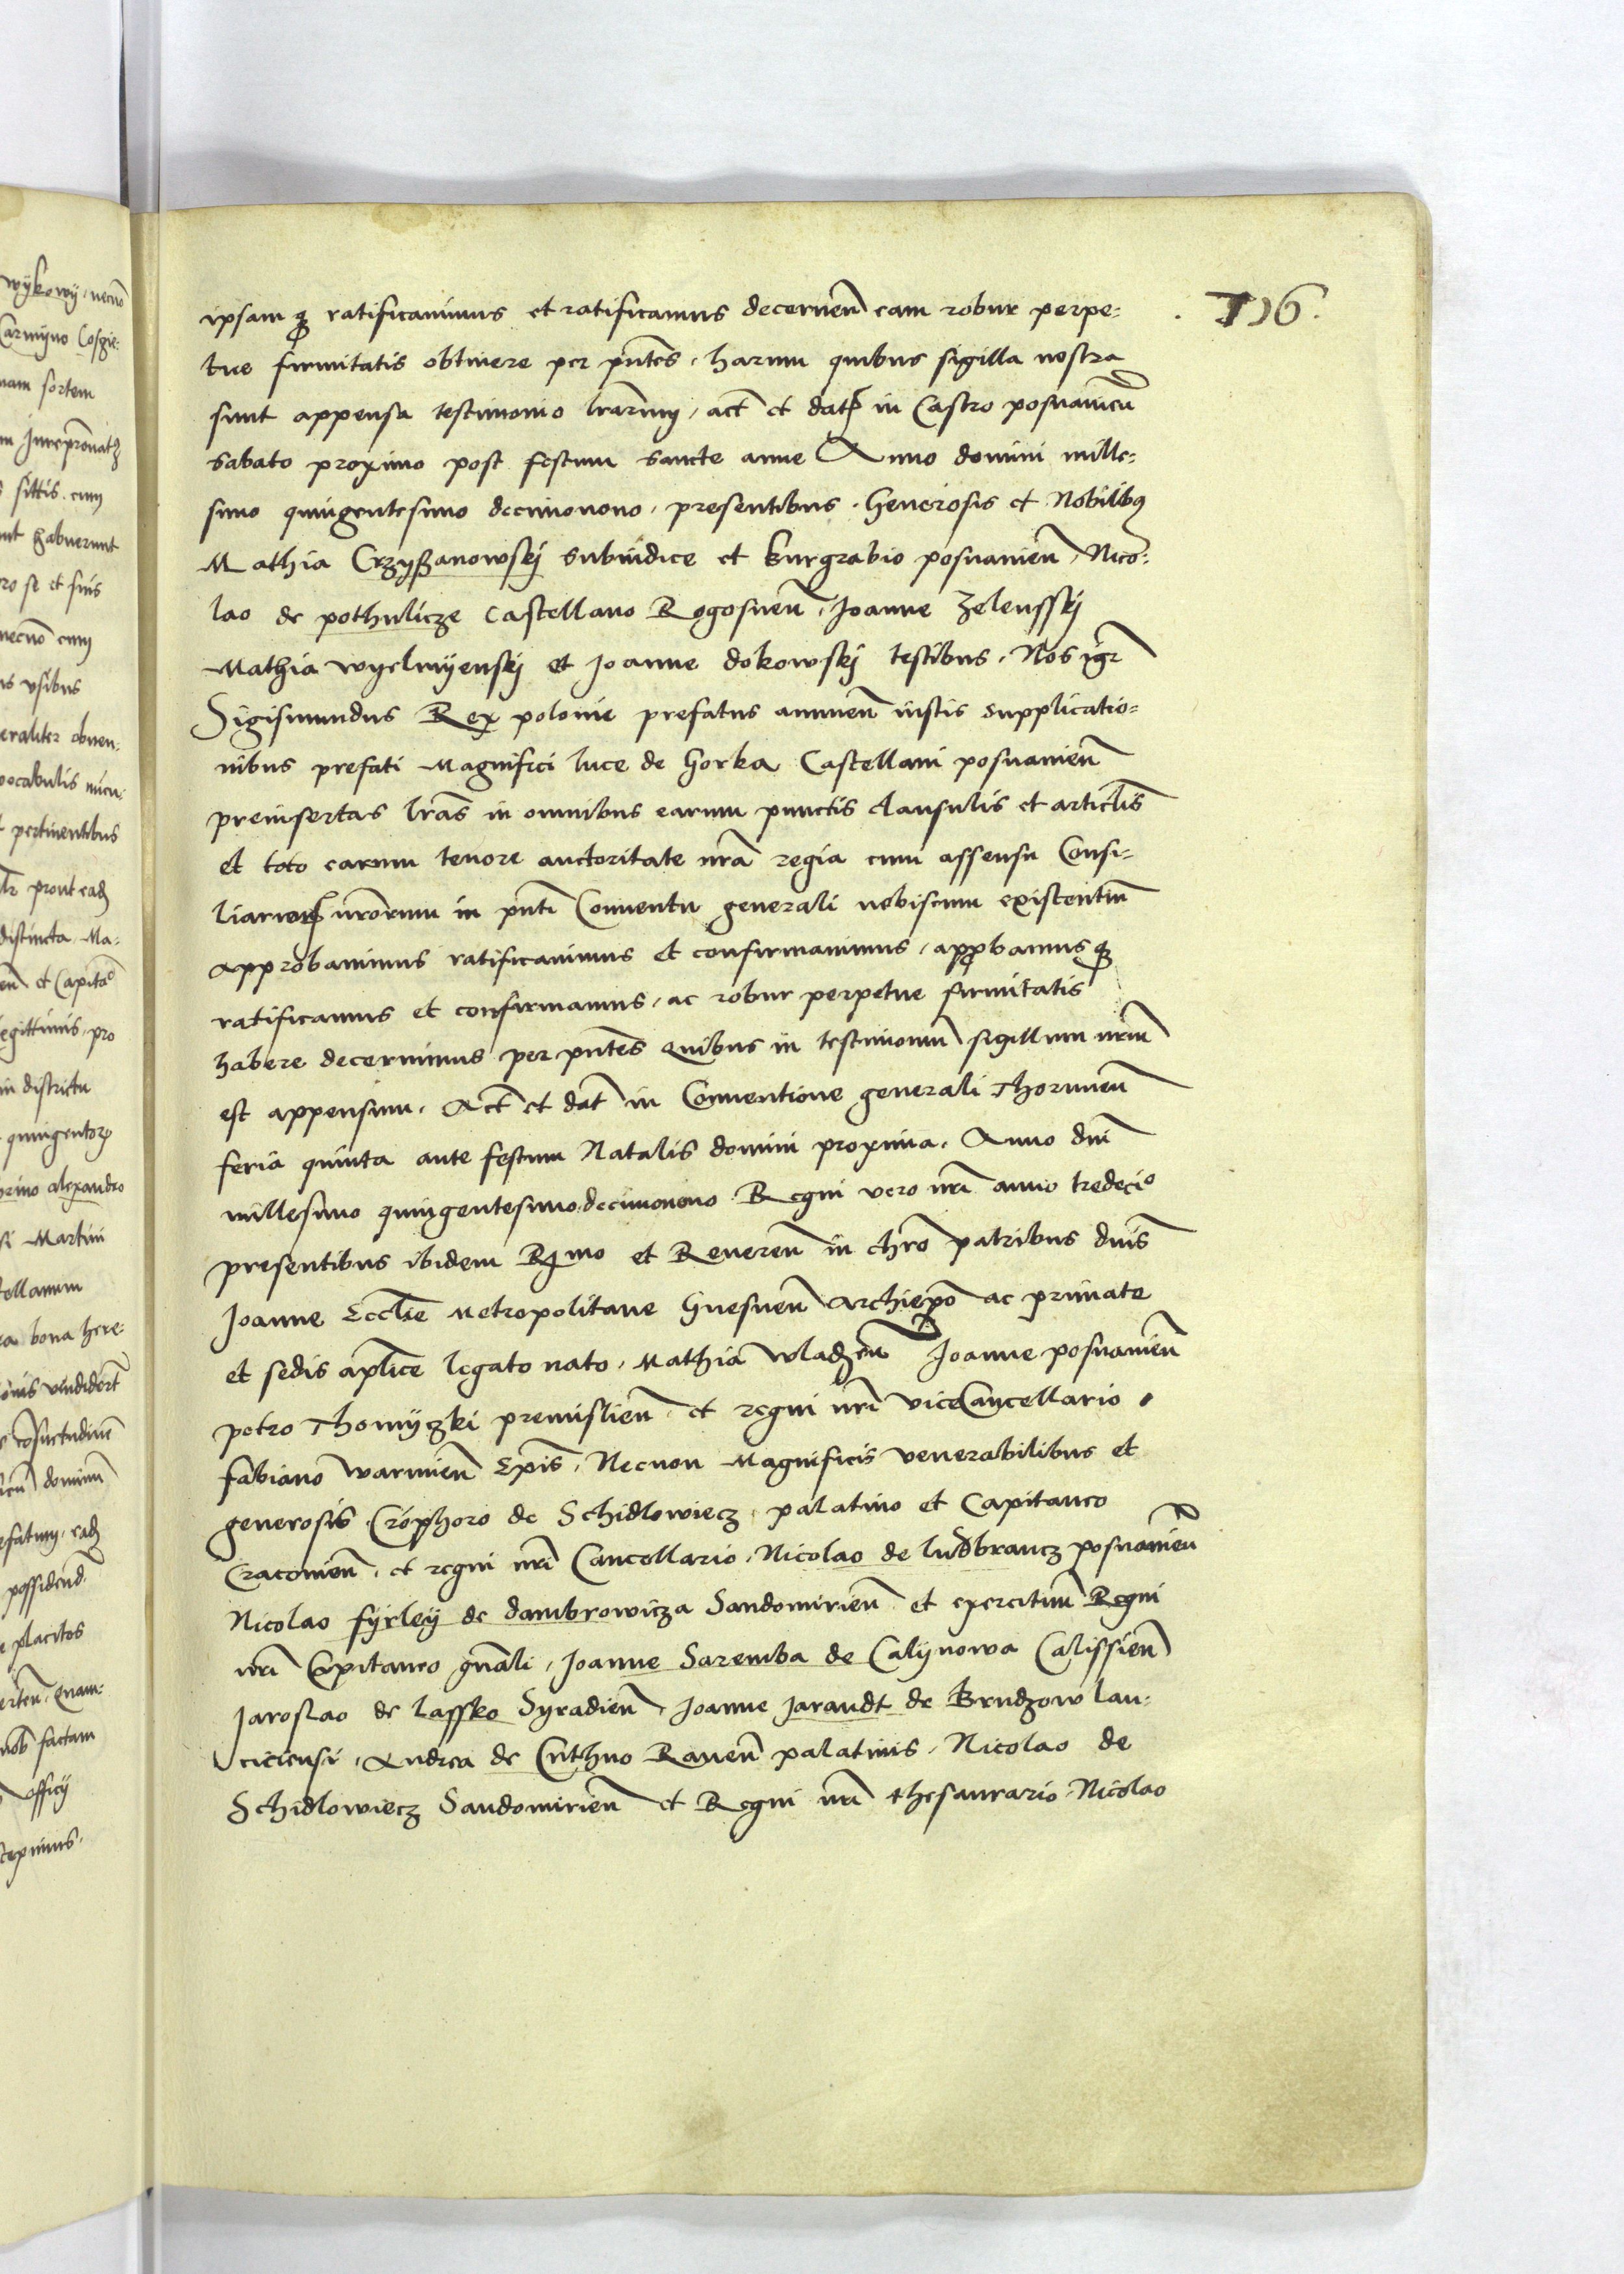 . 116 .
ipsamq̃ ratificavimus et ratificamus decernen̄ eam robur perpe-
tue firmitatis obtinere per pn̄tes, harum quibus sigilla nostra
sunt appensa testimonio lr̄arum, act̄ et dat̄ in Castro posnanien̄
sabato proximo post festum sancte anne Anno domini mille-
simo quingentesimo decimonono, presentibus. Generosis et Nobilibꝯ
Mathia Crzyßanowskj subiudice et burgrabio posnanien̄, Nico-
lao de pothulicze castellano Rogosnen̄, Joanne Zelensskj
Mathia wyelmÿenskj et Joanne dokowskj testibus, Nos igr̄
Sigismundus Rex polonie prefatus annuen̄ iustis supplicatio-
nibus prefati Magnifici luce de Gorka Castellani posnanien̄
preinsertas lr̄as in omnibus earum punctis clausulis et articl̄is
et toto earum tenore auctoritate nr̄a regia cum assensu Consi-
liariorꝝ nr̄orum in pn̄ti Conventu generali nobiscum existentiū
approbavimus ratificavimus et confirmavimus, approbamusq̃
ratificamus et confirmamus, ac robur perpetue firmitatis
habere decernimus per pn̄tes Quibus in testimoniū sigillum nr̄m
est appensum, Act̄ et dat̄ in Conventione generali Thorunien̄
feria quinta ante festum Natalis domini proxima, Anno dn̄i
millesimo quingentesimodecimonono Regni vero nr̄i anno tredecīo
presentibus ibidem Rmo et Reveren̄ in chr̄o patribus dn̄is
Joanne Eccl̄ie Metropolitane Gnesnen̄ Archiep̄o ac primate
et sedis ap̄lice legato nato, Mathia wladzen̄ Joanne posnanien̄
petro Thomÿczki premislien̄ et regni nr̄i viceCancellario,
fabiano warmien̄ Ep̄is, Necnon Magnificis venerabilibus et
generosis Cr̄ophoro de Schidlowiecz, palatino et Capitaneo
Cracovien̄, et regni nr̄i Cancellario, Nicolao de ludbrancz posnanien̄
Nicolao fÿrleÿ de dambrowicza Sandomirien̄ et exercituū Regni
nr̄i Capitaneo gn̄ali, Joanne Saremba de Calÿnowa Calissien̄
Jaroslao de lassko Syradien̄, Joanne Jarandt de Brudzow lan-
ciciensi, Andrea de Cuthno Raven̄ palatinis, Nicolao de
Schidlowiecz Sandomirien̄ et Regni nr̄i thesaurario, Nicolao